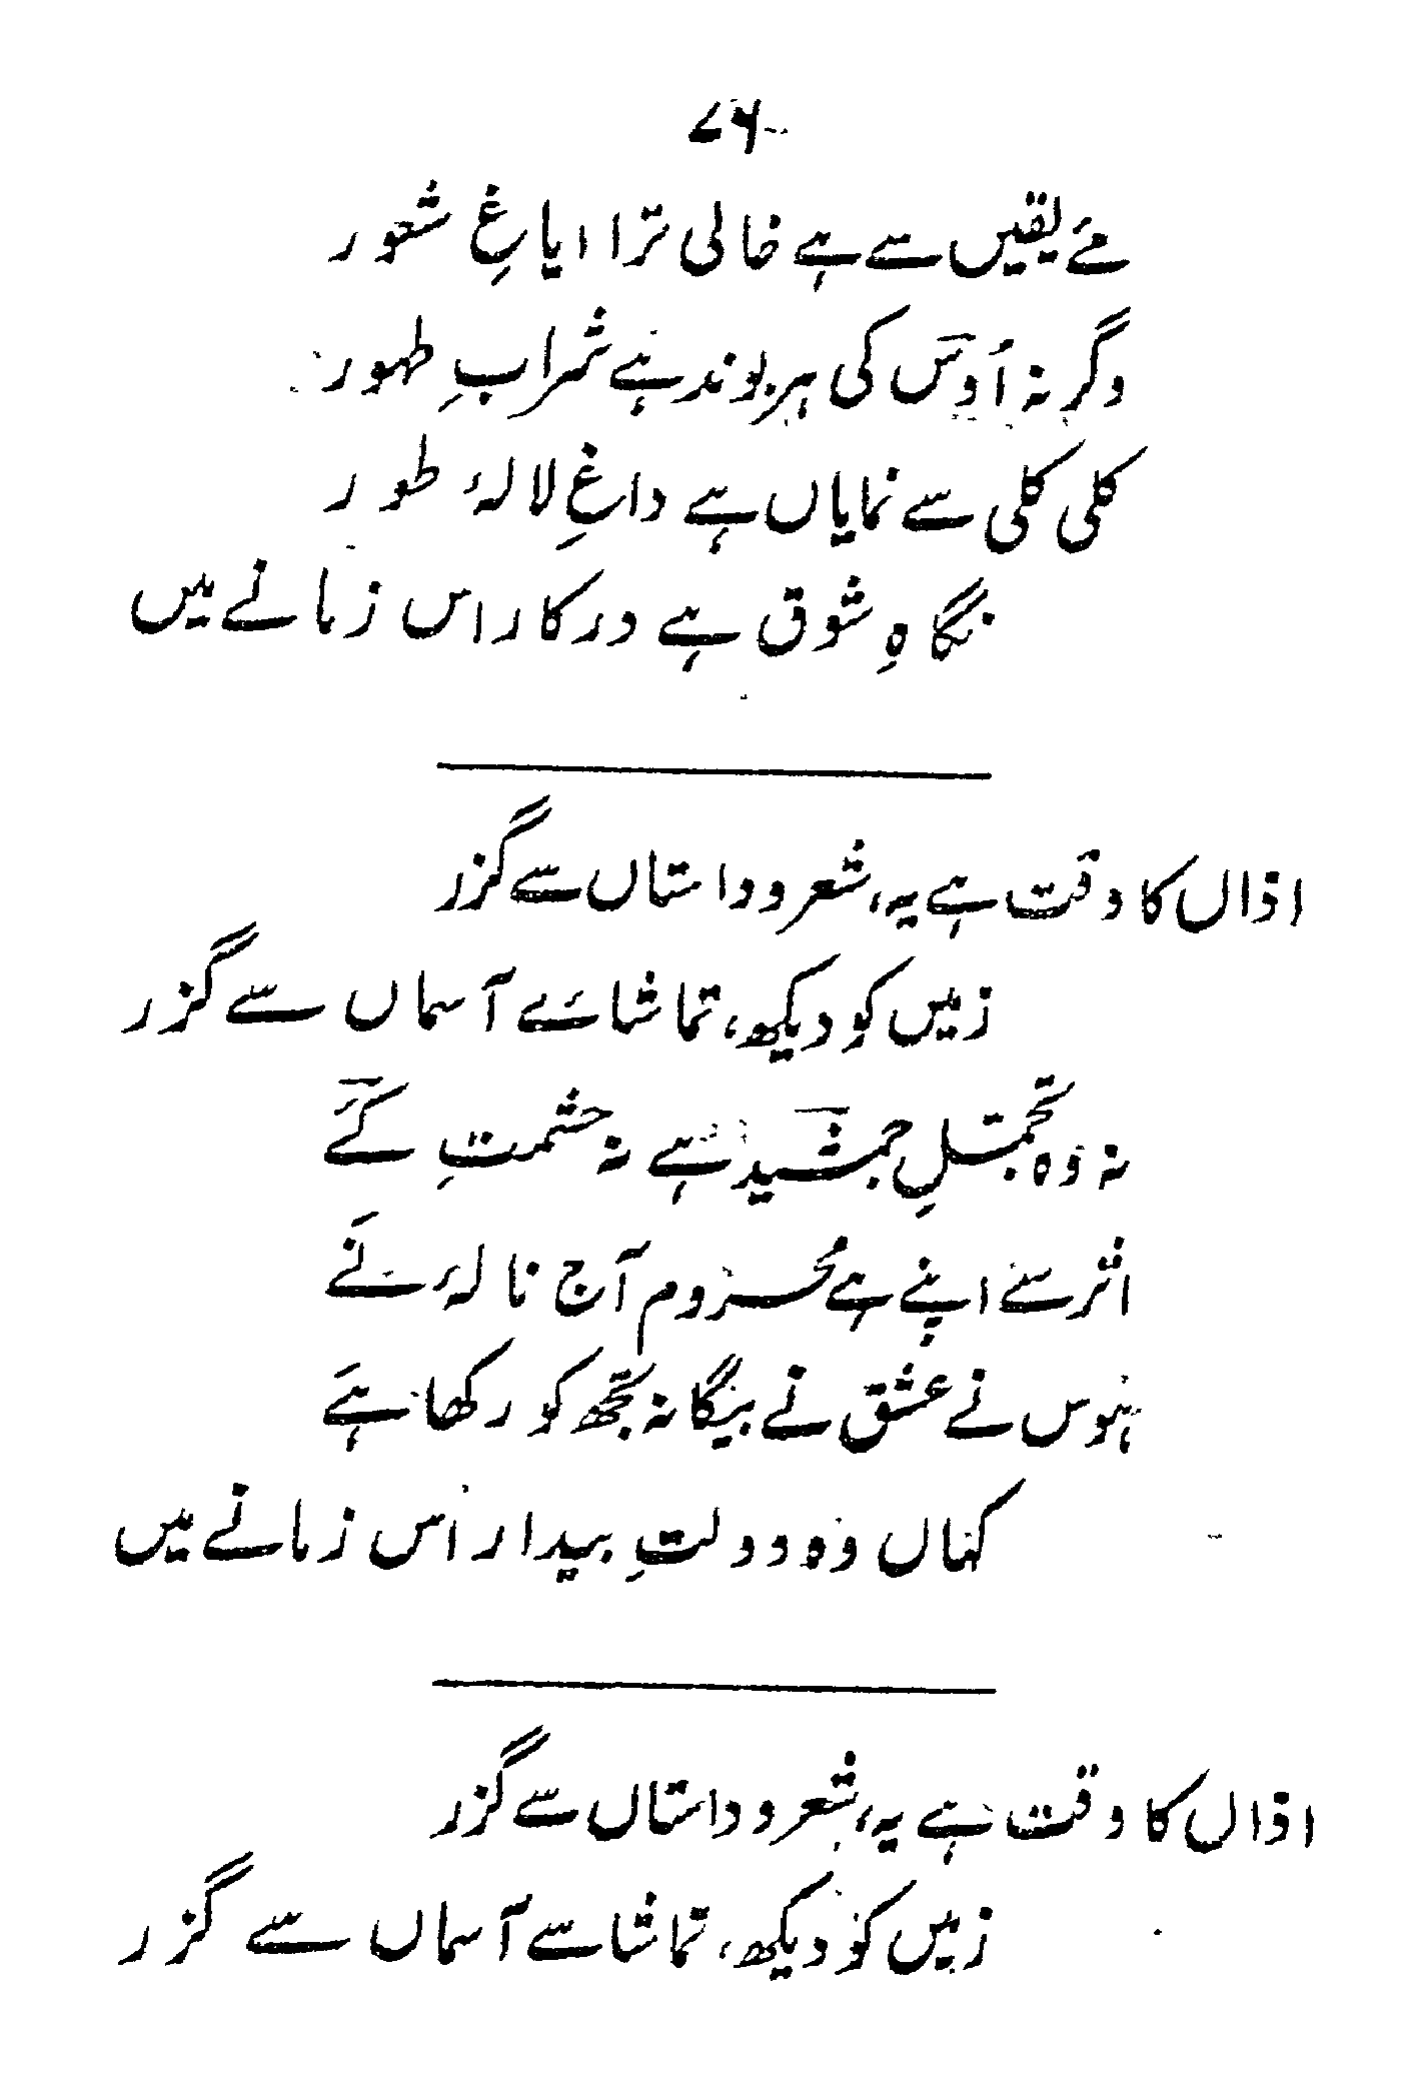 ۷۶
مۓ یقیں سے ہے خالی ترا ایاغِ شعور
وگرنہ اُوس کی ہر بوند ہے شرابِ طہور
کلی کلی سے نمایاں ہے داغِ لالۂ طور
نگاہِ شوق ہے درکار اس زمانے میں
اذاں کا وقت ہے یہ، شعر و داستاں سے گزر
زمیں کو دیکھ، تماشائے آسماں سے گزر
نہ وہ تجملِ جمشید ہے نہ حشمتِ کَے
اثر سے اپنے ہے محروم آج نالۂ نَے
ہوس نے عشق نے بیگانہ تجھ کو رکھا ہے
کہاں وہ دولتِ بیدار اس زمانے میں
اذاں کا وقت ہے یہ، شعر و داستاں سے گزر
زمیں کو دیکھ، تماشاسے آسماں سے گزر